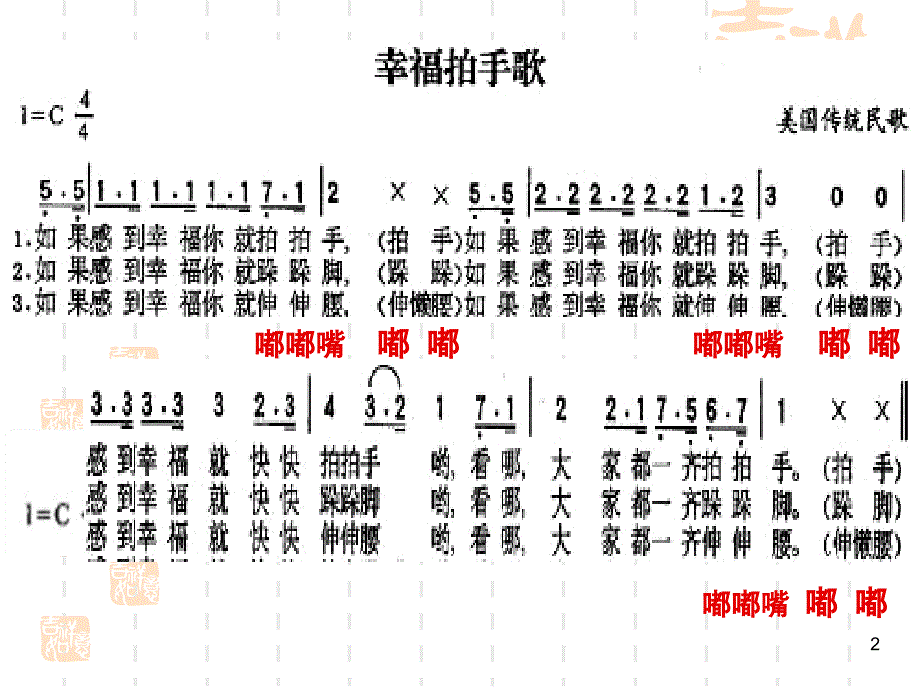 幸福拍手歌
1=C 4/4
美国传统民歌
5.5|1.1 1.1 1.1 7.1|2 × × 5.5|2.2 2.2 2.2 1.2|3 0 0|
1.如果感到幸福你就拍拍手,(拍手)如果感到幸福你就拍拍手,(拍手)
2.如果感到幸福你就跺跺脚,(跺跺)如果感到幸福你就跺跺脚,(跺跺)
3.如果感到幸福你就伸伸腰,(伸懒腰)如果感到幸福你就伸伸腰.(伸懒腰)
嘟嘟嘴 嘟 嘟 嘟嘟嘴 嘟 嘟
3.3 3.3 3 2.3|4 3.2 1 7.1|2 2.1 7.5 6.7|1 × ×‖
感到幸福就快快拍拍手 哟,看哪,大家都一齐拍拍手。(拍手)
感到幸福就快快跺跺脚 哟,看哪,大家都一齐跺跺脚。(跺脚)
1=C
感到幸福就快快伸伸腰 哟,看哪,大家都一齐伸伸腰。(伸懒腰)
嘟嘟嘴 嘟 嘟
2